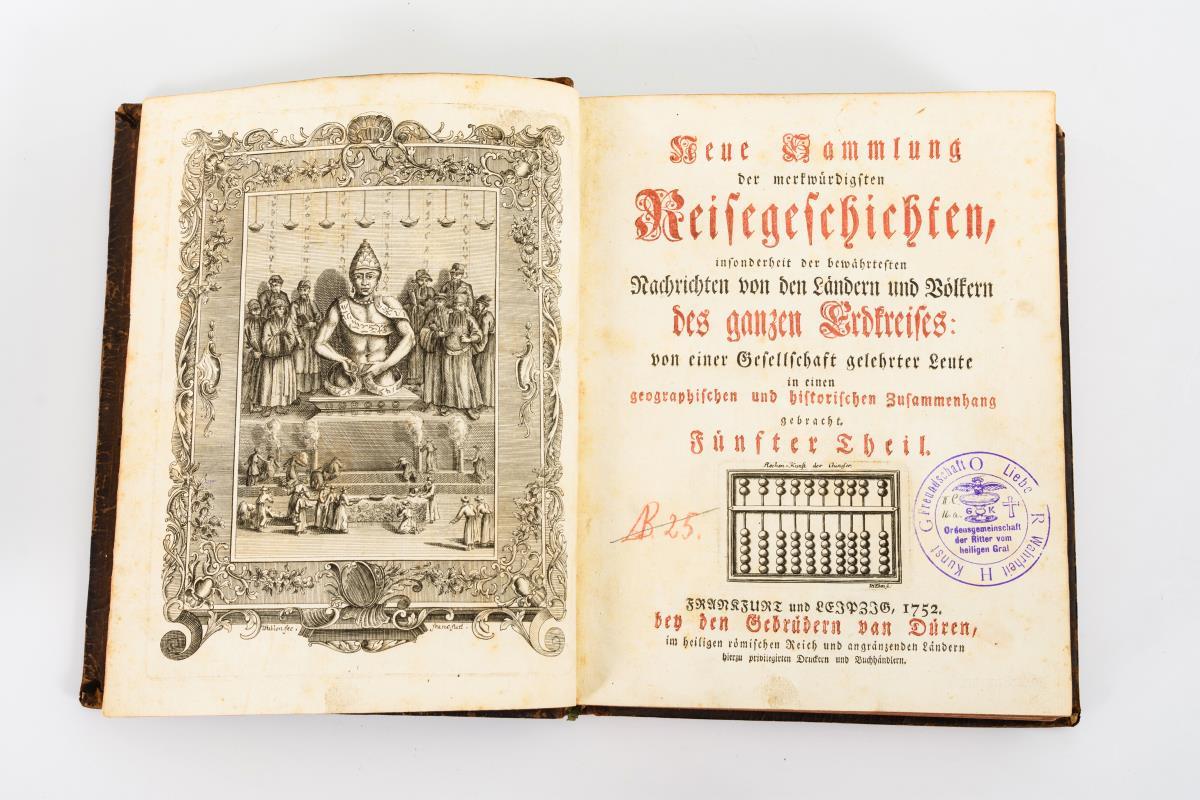 Wicklon fec:
Francfurt.
Neue Sammlung
der merkwürdigsten
Reisegeschichten,
insonderheit der bewährtesten
Nachrichten von den Ländern und Völkern
des ganzen Erdkreises:
von einer Gesellschaft gelehrter Leute
in einen
geographischen und historischen Zusammenhang
gebracht.
Fünfter Theil.
Rechen-Kunst der Chineser.
B. 25.
Kunst G Freundschaft O Liebe R Wahrheit H
G K
Ordensgemeinschaft
der Ritter vom
heiligen Gral
FRANKFURT und LEIPZIG, 1752.
bey den Gebrüdern van Düren,
im heiligen römischen Reich und angränzenden Ländern
hierzu privilegirten Druckern und Buchhändlern.